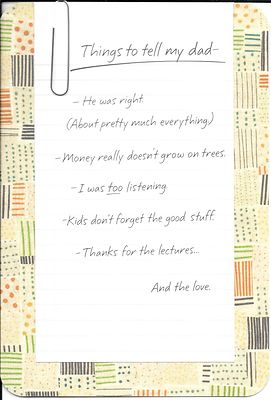 Things to tell my dad-
- He was right.
(About pretty much everything.)
- Money really doesn't grow on trees.
- I was too listening.
- Kids don't forget the good stuff.
- Thanks for the lectures...
And the love.